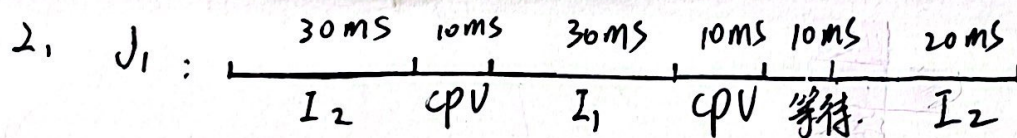 2, J₁: 30ms 10ms 30ms 10ms 10ms 20ms
I₂ CPU I₁ CPU 等待. I₂